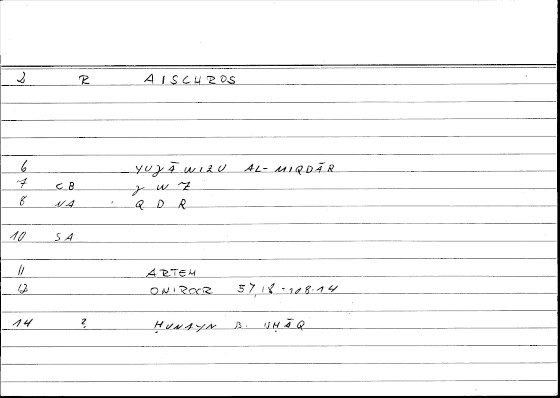 2 R AISCHROS
6 YUǧĀWIZU AL-MIQDĀR
7 CB ǧ W Z
8 NA Q D R
10 SA
11 ARTEM
12 ONIROCR 57,18 - 108.14
14 2 ḤUNAYN B. ISḤĀQ